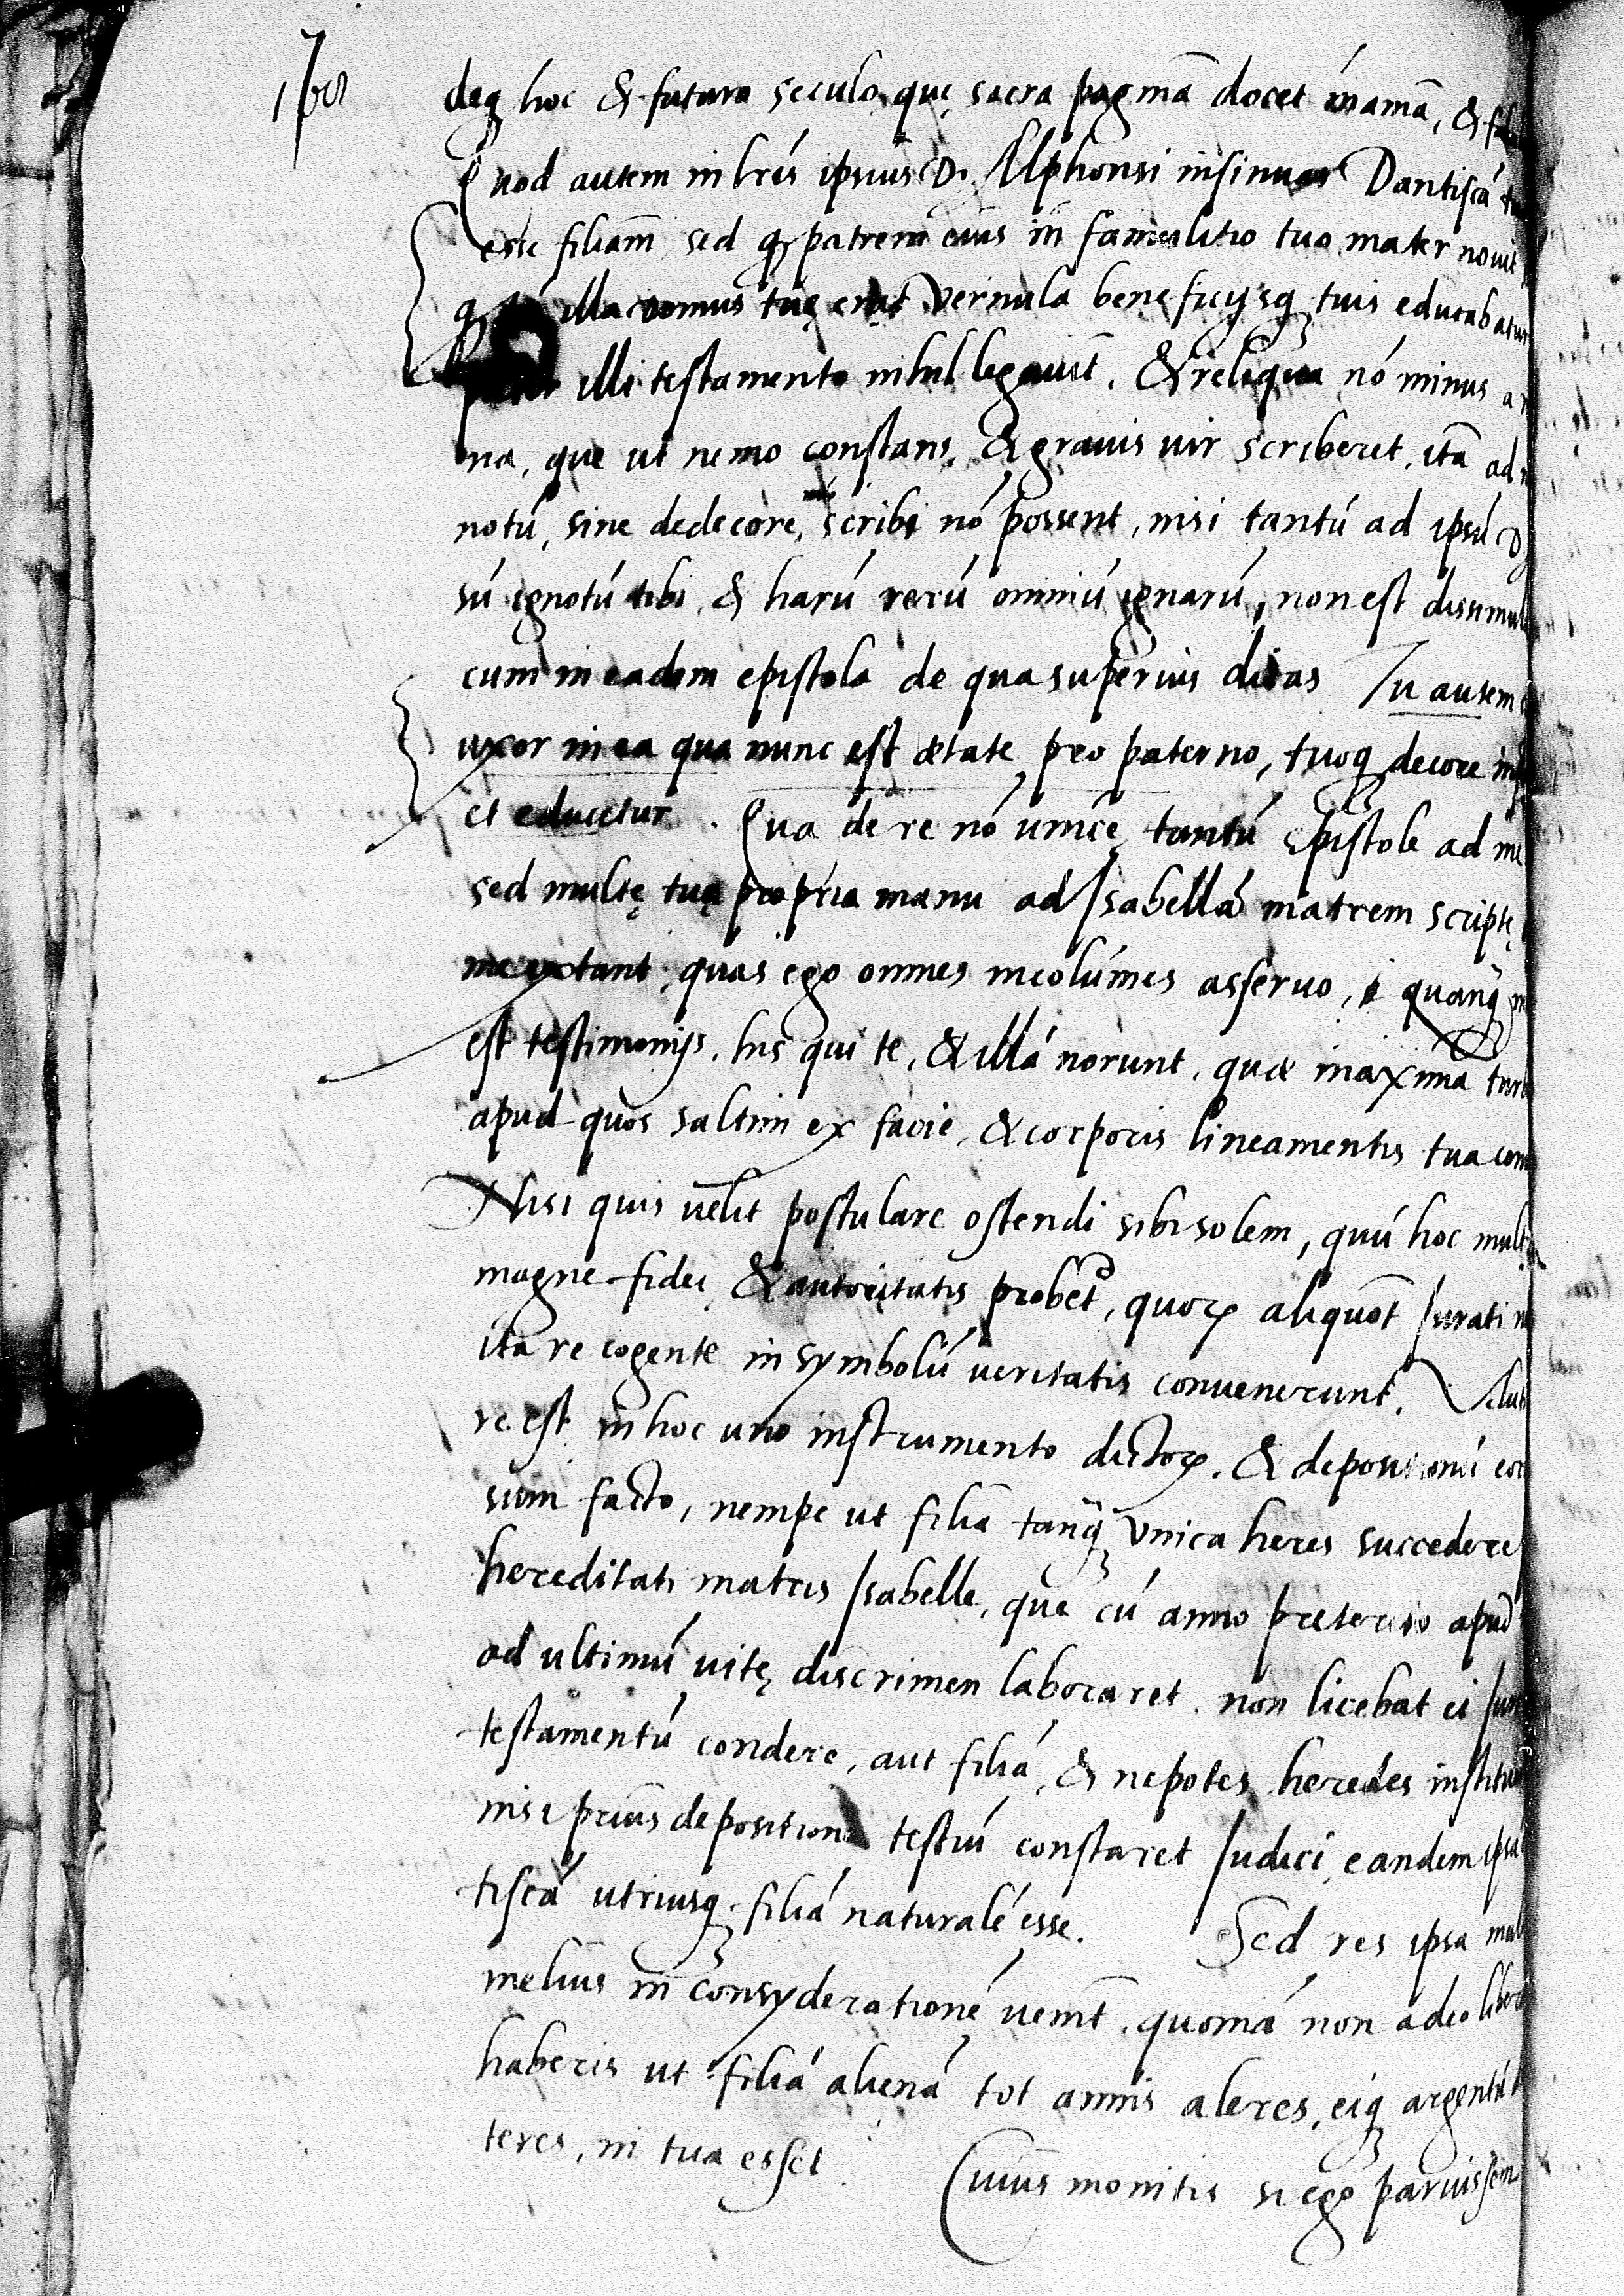 168
deq hoc & futuro seculo, quę sacra pagina docet inania, & fal
Quod autem in lrís ipsius D. Alphonsi insinuas Dantiscá
esse filiam̄ sed q patrem eius in famulitio tuo mater novit
q illa domus tuę erat vernula beneficijsq tuis educabatur
pater illi testamento nihil legavit. & reliqua nó minus
na, que ut nemo constans, & gravis vir scriberet, ita ad
notú, sine dedecore, scribi nó possent, nisi tantú ad ipsú D
sú ignotú tibi, & harú rerú omniú ignarú, non est dissimul
cum in eadem epistola de qua superius dicas Tu autem
uxor in ea qua nunc est ætate, pro paterno, tuoq decore
et educetur. Qua de re nó unicę tantú Epistole ad me
sed multę tuą propria manu ad Isabellá matrem scriptę
me extant, quas ego omnes incolúmes asservo, quanq
est testimonijs. his qui te, & illá norunt, quæ maxima turb
apud quos saltim ex facie, & corporis lineamentis tua con
Nisi quis velit postulare ostendi sibi solem, quú hoc mult
magne fidei, & autoritatis probet, quoꝝ aliquot Iurati
ita re cogente in symbolú veritatis convenerunt. Aut
re est in hoc uno instrumento dictoꝝ. & depositionú eor
sum facto, nempe ut filia tanq̃ unica heres succedere
hereditati matris Isabelle, que cú anno preterito apud
ad ultimú vitę discrimen laboraret. non licebat ei
testamentú condere, aut filiá, & nepotes heredes institu
nisi prius deposition testiú constaret Iudici, eandem ipsá
tiscá utriusq filiá naturalé esse. Sed res ipsa mul
melius in consyderationé venit, quoniá non adeo liber
haberis ut filiá aliená tot annis aleres, eiq argentú
teres, ni tua esset Cuius monitis si ego paruissem